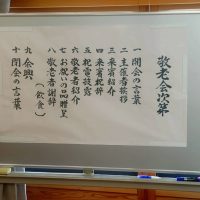 敬老会次第
一 開会の言葉
二 主催者挨拶
三 来賓紹介
四 来賓祝辞
五 祝電披露
六 敬老者紹介
七 お祝いの品贈呈
八 敬老者謝辞
九 会興
(飲食)
十 閉会の言葉